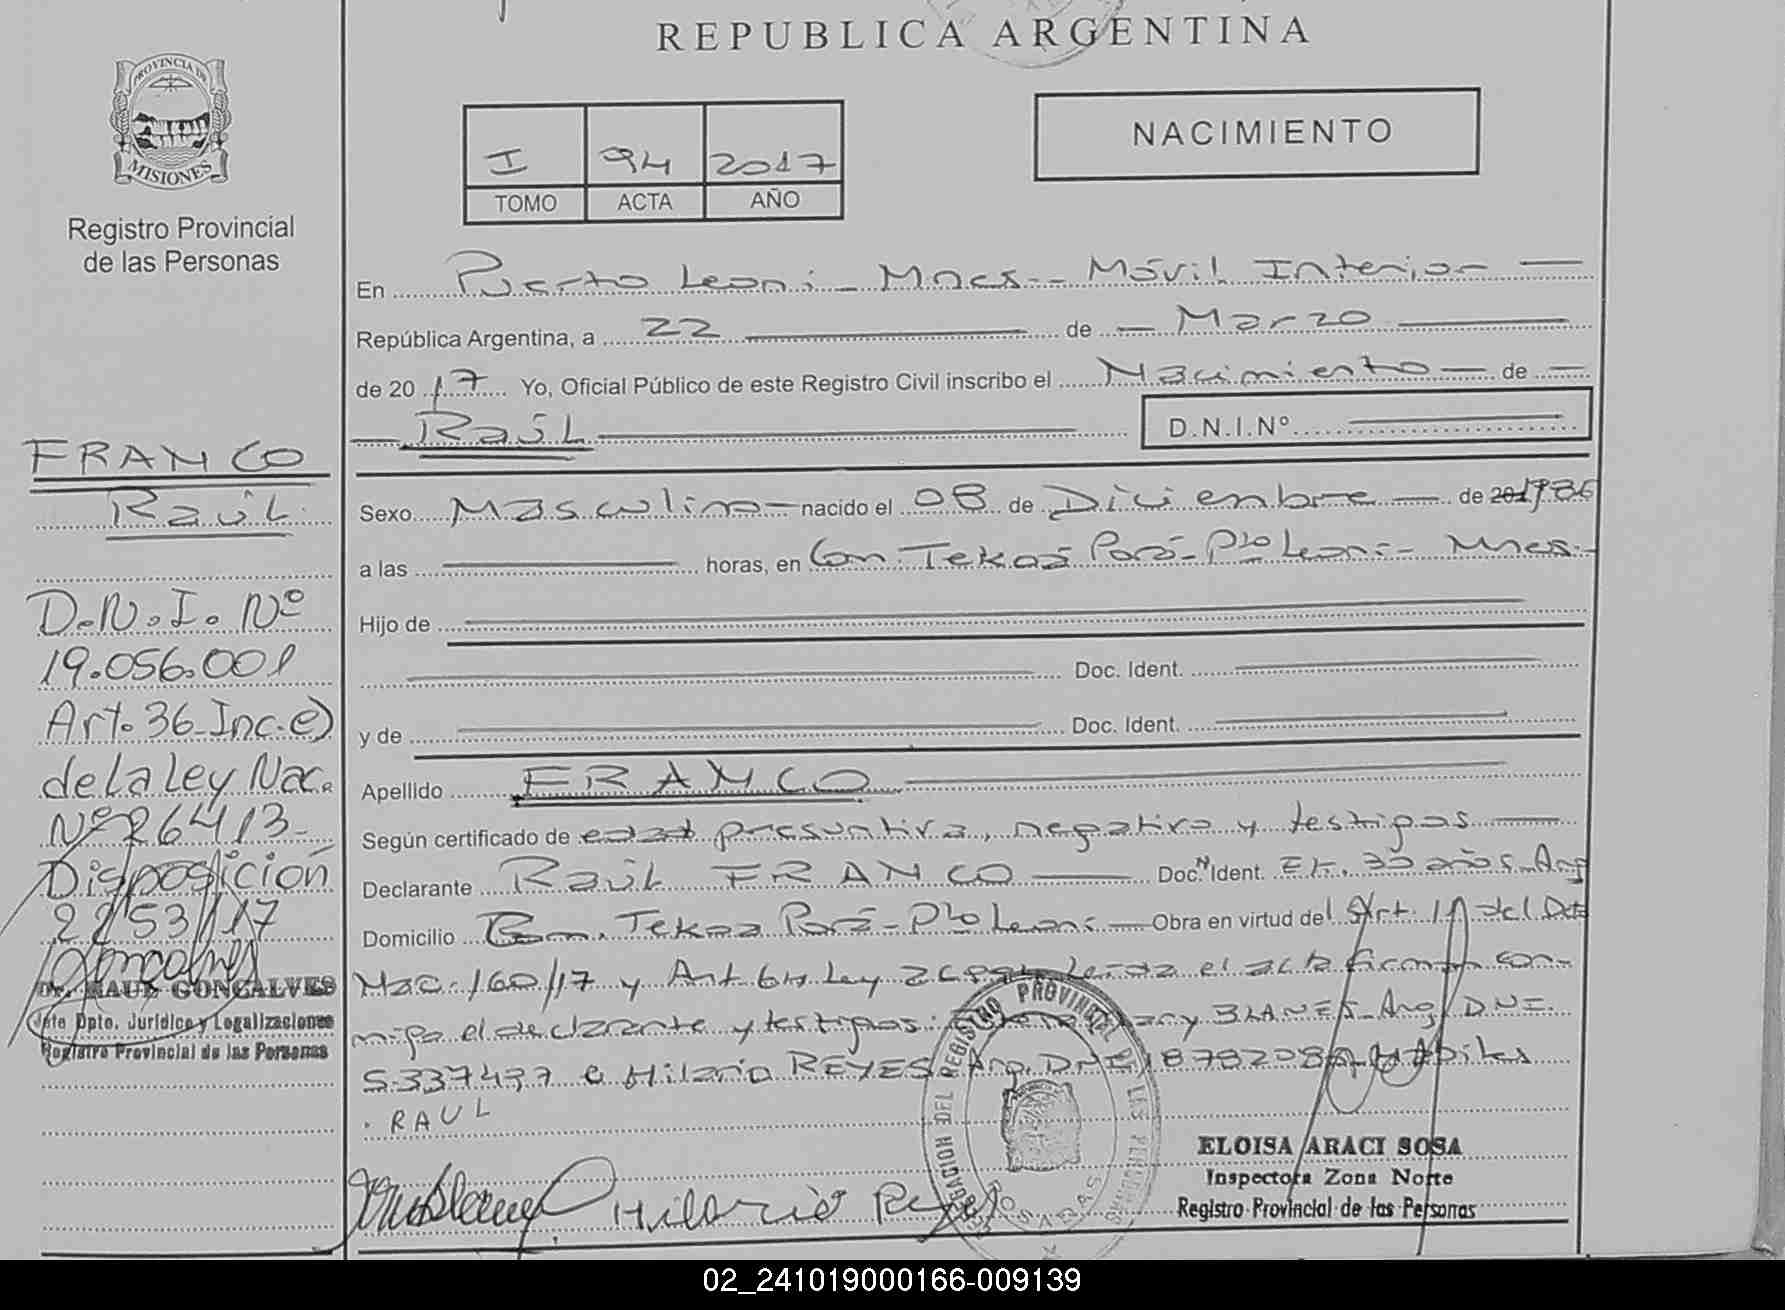 REPUBLICA ARGENTINA
PROVINCIA DE
MISIONES
Registro Provincial
de las Personas
NACIMIENTO
I 94 2017
TOMO ACTA AÑO
En Puerto Leoni - Mnes - Móvil Interior
República Argentina, a 22 de Marzo
de 2017 Yo, Oficial Público de este Registro Civil inscribo el Nacimiento de
Raúl D.N.I.Nº
Sexo Masculino nacido el 08 de Diciembre de 1986
a las horas, en Com. Tekoá Porá - Pto Leoni - Mnes.
Hijo de
Doc. Ident.
y de Doc. Ident.
Apellido FRANCO
Según certificado de edad presuntiva, negativa y testigos
Declarante Raúl FRANCO Doc. Ident. 30 años Arg
Domicilio Com. Tekoa Porá - Pto Leoni - Obra en virtud del Art. del Dcto
Nac. 160/17 y Art. 64 Ley leída el acta firman con-
migo el declarante y testigos: BLANES - Arg. DNI.
5.337437 e Hilario REYES Arg. DNI Hábiles
RAUL
Hilario
ELOISA ARACI SOSA
Inspectora Zona Norte
Registro Provincial de las Personas
DEL REGISTRO PROVINCIAL DE LAS PERSONAS
POSADAS
FRANCO
Raúl
D.N.I. Nº
19.056.001
Art. 36 Inc. e)
de la Ley Nac.
Nº 26413-
Disposición
2253/17
Dr. RAUL GONCALVES
Jefe Dpto. Jurídico y Legalizaciones
Registro Provincial de las Personas
02_241019000166-009139